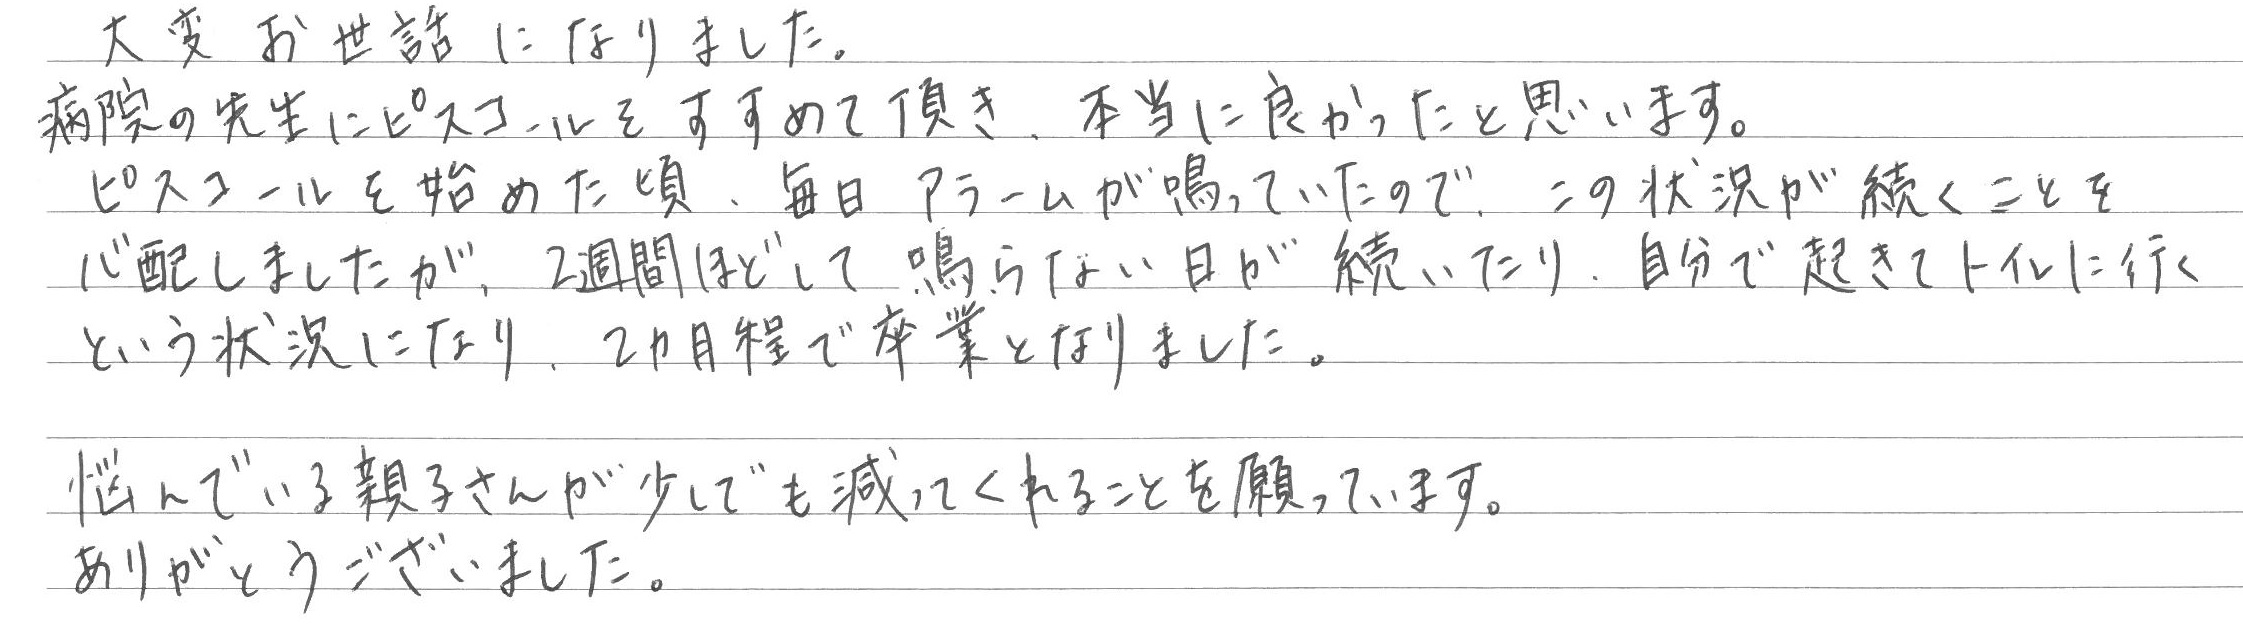 大変お世話になりました。
病院の先生にピスコールをすすめて頂き、本当に良かったと思います。
ピスコールを始めた頃、毎日アラームが鳴っていたので、この状況が続くことを
心配しましたが、2週間ほどして鳴らない日が続いたり、自分で起きてトイレに行く
という状況になり、2カ月程で卒業となりました。
悩んでいる親子さんが少しでも減ってくれることを願っています。
ありがとうございました。